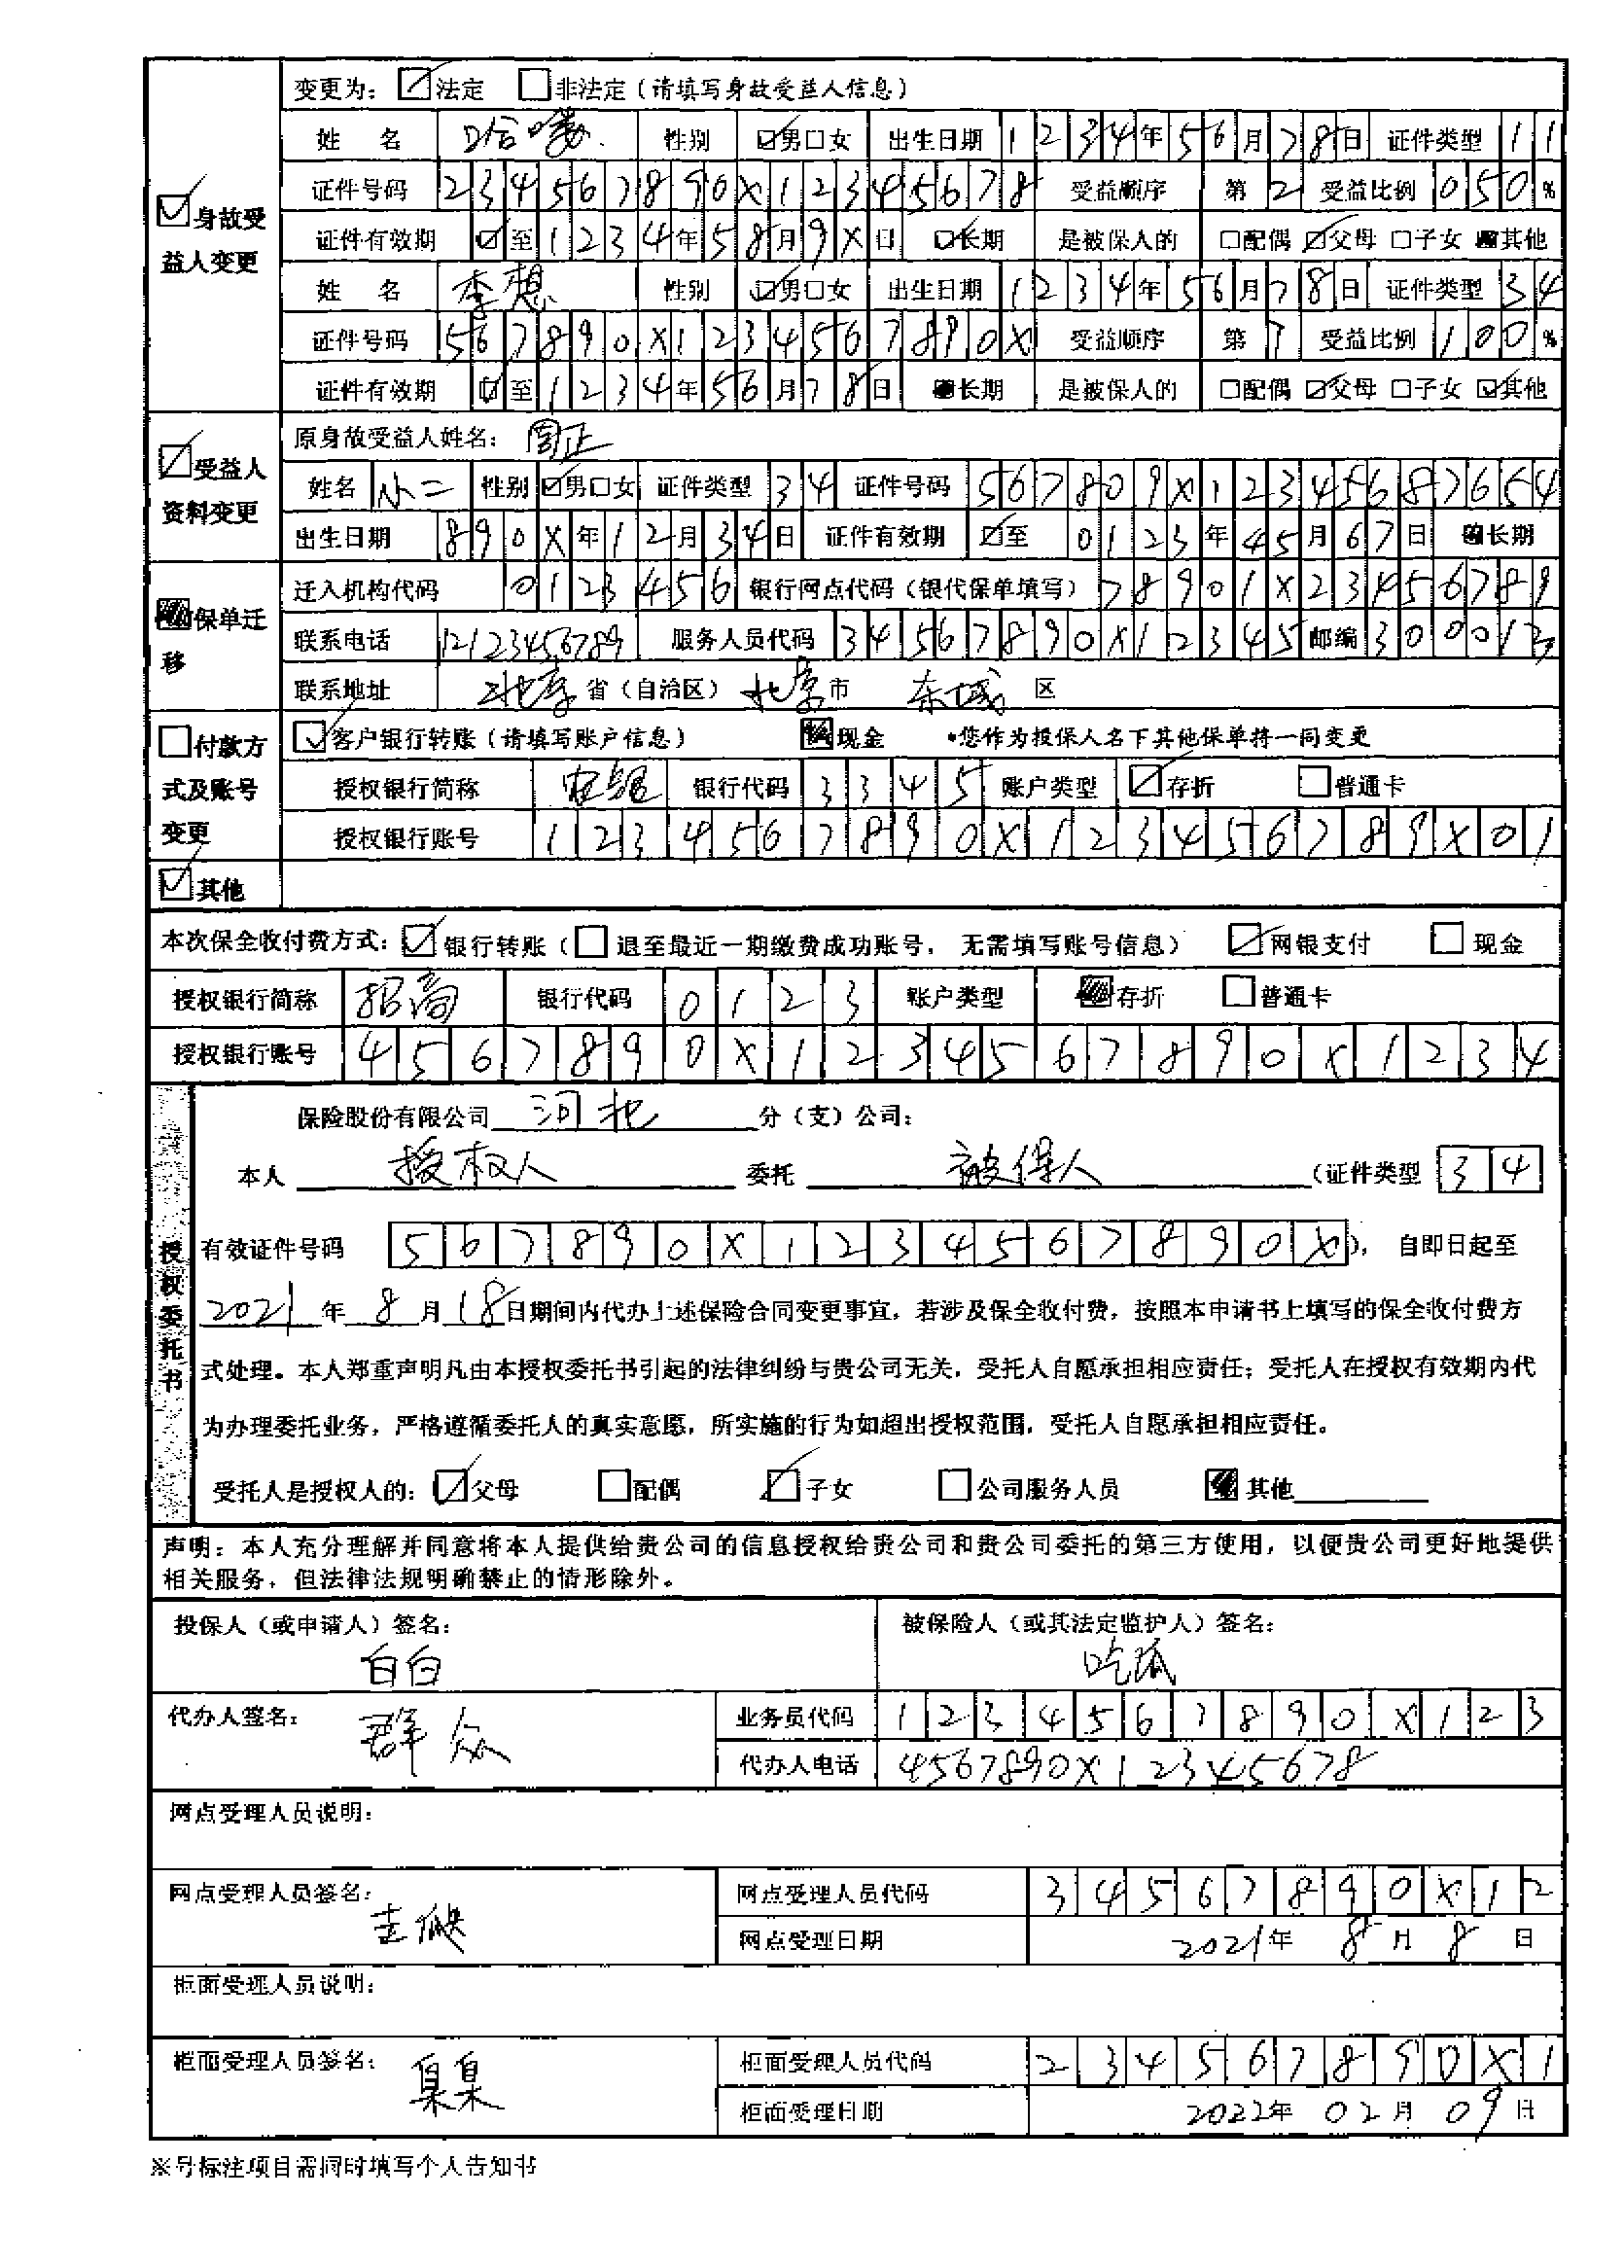 变更为: ☑法定 □非法定(请填写身故受益人信息)
姓 名 哈喽 性别 ☑男□女 出生日期 1234年56月78日 证件类型 11
☑身故受益人变更
证件号码 234567890X12345678 受益顺序 第2 受益比例 050%
证件有效期 ☑至1234年58月9X日 ☑长期 是被保人的 □配偶 ☑父母 □子女 ■其他
姓 名 李想 性别 ☑男□女 出生日期 1234年56月78日 证件类型 34
证件号码 567890X1234567890X 受益顺序 第1 受益比例 100%
证件有效期 ☑至1234年56月78日 ■长期 是被保人的 □配偶 ☑父母 □子女 ☑其他
☑受益人资料变更
原身故受益人姓名: 周正
姓名 小二 性别 ☑男□女 证件类型 34 证件号码 567809X12345687654
出生日期 890X年12月34日 证件有效期 ☑至 0123年45月67日 ■长期
■保单迁移
迁入机构代码 0123456 银行网点代码(银代保单填写) 78901X23456789
联系电话 12123456789 服务人员代码 34567890X12345 邮编 300013
联系地址 北京 省(自治区) 北京 市 东城 区
□付款方式及账号变更
☑客户银行转账(请填写账户信息) ■现金 *您作为投保人名下其他保单将一同变更
授权银行简称 银行代码 3345 账户类型 ☑存折 □普通卡
授权银行账号 1234567890X123456789X01
☑其他
本次保全收付费方式: ☑银行转账(□退至最近一期缴费成功账号, 无需填写账号信息) ☑网银支付 □现金
授权银行简称 招商 银行代码 0123 账户类型 ■存折 □普通卡
授权银行账号 4567890X1234567890X1234
授权委托书
保险股份有限公司 河北 分(支)公司:
本人 授权人 委托 被保人 (证件类型 34
有效证件号码 567890X1234567890X), 自即日起至
2021年8月18日期间内代办上述保险合同变更事宜, 若涉及保全收付费, 按照本申请书上填写的保全收付费方
式处理。本人郑重声明凡由本授权委托书引起的法律纠纷与贵公司无关, 受托人自愿承担相应责任; 受托人在授权有效期内代
为办理委托业务, 严格遵循委托人的真实意愿, 所实施的行为如超出授权范围, 受托人自愿承担相应责任。
受托人是授权人的: ☑父母 □配偶 ☑子女 □公司服务人员 ■其他
声明: 本人充分理解并同意将本人提供给贵公司的信息授权给贵公司和贵公司委托的第三方使用, 以便贵公司更好地提供
相关服务, 但法律法规明确禁止的情形除外。
投保人(或申请人)签名: 被保险人(或其法定监护人)签名:
白白 吃瓜
代办人签名: 群众 业务员代码 1234567890X123
代办人电话 4567890X12345678
网点受理人员说明:
网点受理人员签名: 网点受理人员代码 34567890X12
网点受理日期 2021年 8月 8日
柜面受理人员说明:
柜面受理人员签名: 柜面受理人员代码 234567890X1
柜面受理日期 2022年 02月 09日
※号标注项目需同时填写个人告知书